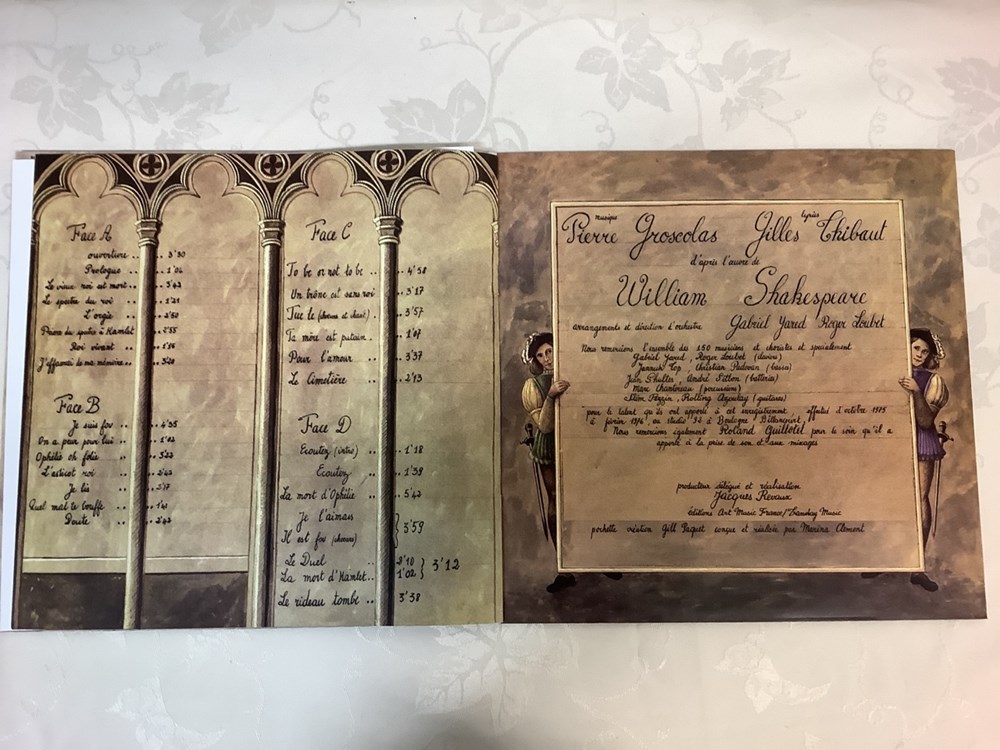 Face A
ouverture .. 3'30
Prologue .. 1'04
Le vieux roi est mort.. 3'43
Le spectre du roi .. 1'21
L'orgie .. 2'50
Prière du spectre à Hamlet 2'55
Roi vivant .. 1'16
J'effacerai de ma mémoire.. 3'20
Face B
Je suis fou .. 4'35
On a peur pour lui .. 1'02
Ophélie oh folie ..
L'asticot roi .. 2'43
Je lis ..
Quel mal te bouffe ..
Doute ..
Face C
To be or not to be .. 4'58
Un trône est sans roi .. 3'17
Tue le (chœurs et chant) . 3'57
Ta mère est putain .. 1'07
Pour l'amour .. 3'37
Le Cimetière .. 2'13
Face D
Ecoutez (intro) .. 1'18
Ecoutez .. 1'39
La mort d'Ophélie .. 5'42
Je l'aimais
Il est fou (chœurs) } 3'59
Le Duel .. 2'10
La mort d'Hamlet.. 1'02 } 3'12
Le rideau tombe .. 3'38
musique lyrics
Pierre Groscolas Gilles Thibaut
d'après l'œuvre de
William Shakespeare
arrangements et direction d'orchestre Gabriel Yared Roger Loubet
Nous remercions l'ensemble des 150 musiciens et choristes et specialement
Gabriel Yared, Roger Loubet (claviers)
Jannick Top, Christian Padovan (basses)
Jean Schultes, André Sitbon (batteries)
Marc Chantereau (percussions)
Slim Pezzin, (guitares)
pour le talent qu'ils ont apporté à cet enregistrement, effectué d'octobre 1975
à février 1976, au studio 92 à Boulogne Billancourt.
Nous remercions également Roland Guillotel pour le soin qu'il a
apporté à la prise de son et aux mixages
producteur délégué et réalisation
Jacques Revaux
éditions Art Music France/
pochette création Gill Paquet conçue et réalisée par